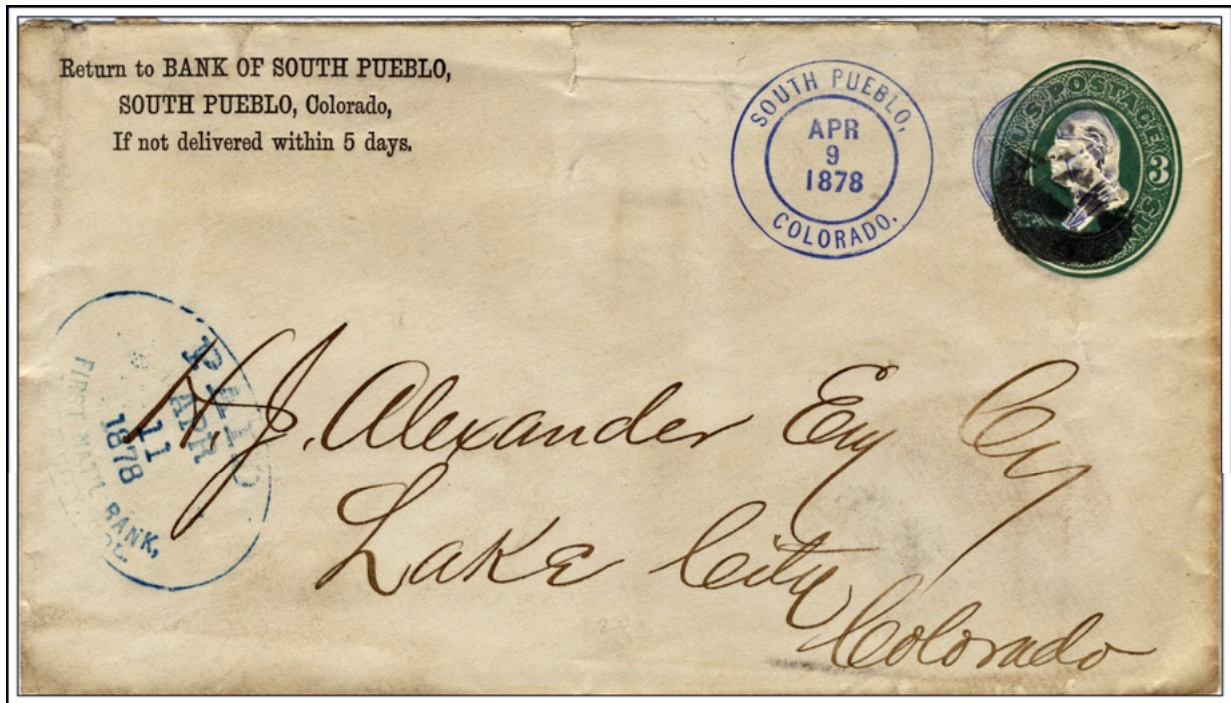 Return to BANK OF SOUTH PUEBLO,
SOUTH PUEBLO, Colorado,
If not delivered within 5 days.
SOUTH PUEBLO,
APR
9
1878
COLORADO.
U.S. POSTAGE
3
PAID
APR
11
1878
FIRST NAT'L BANK,
H. J. Alexander Esq Cy
Lake City
Colorado